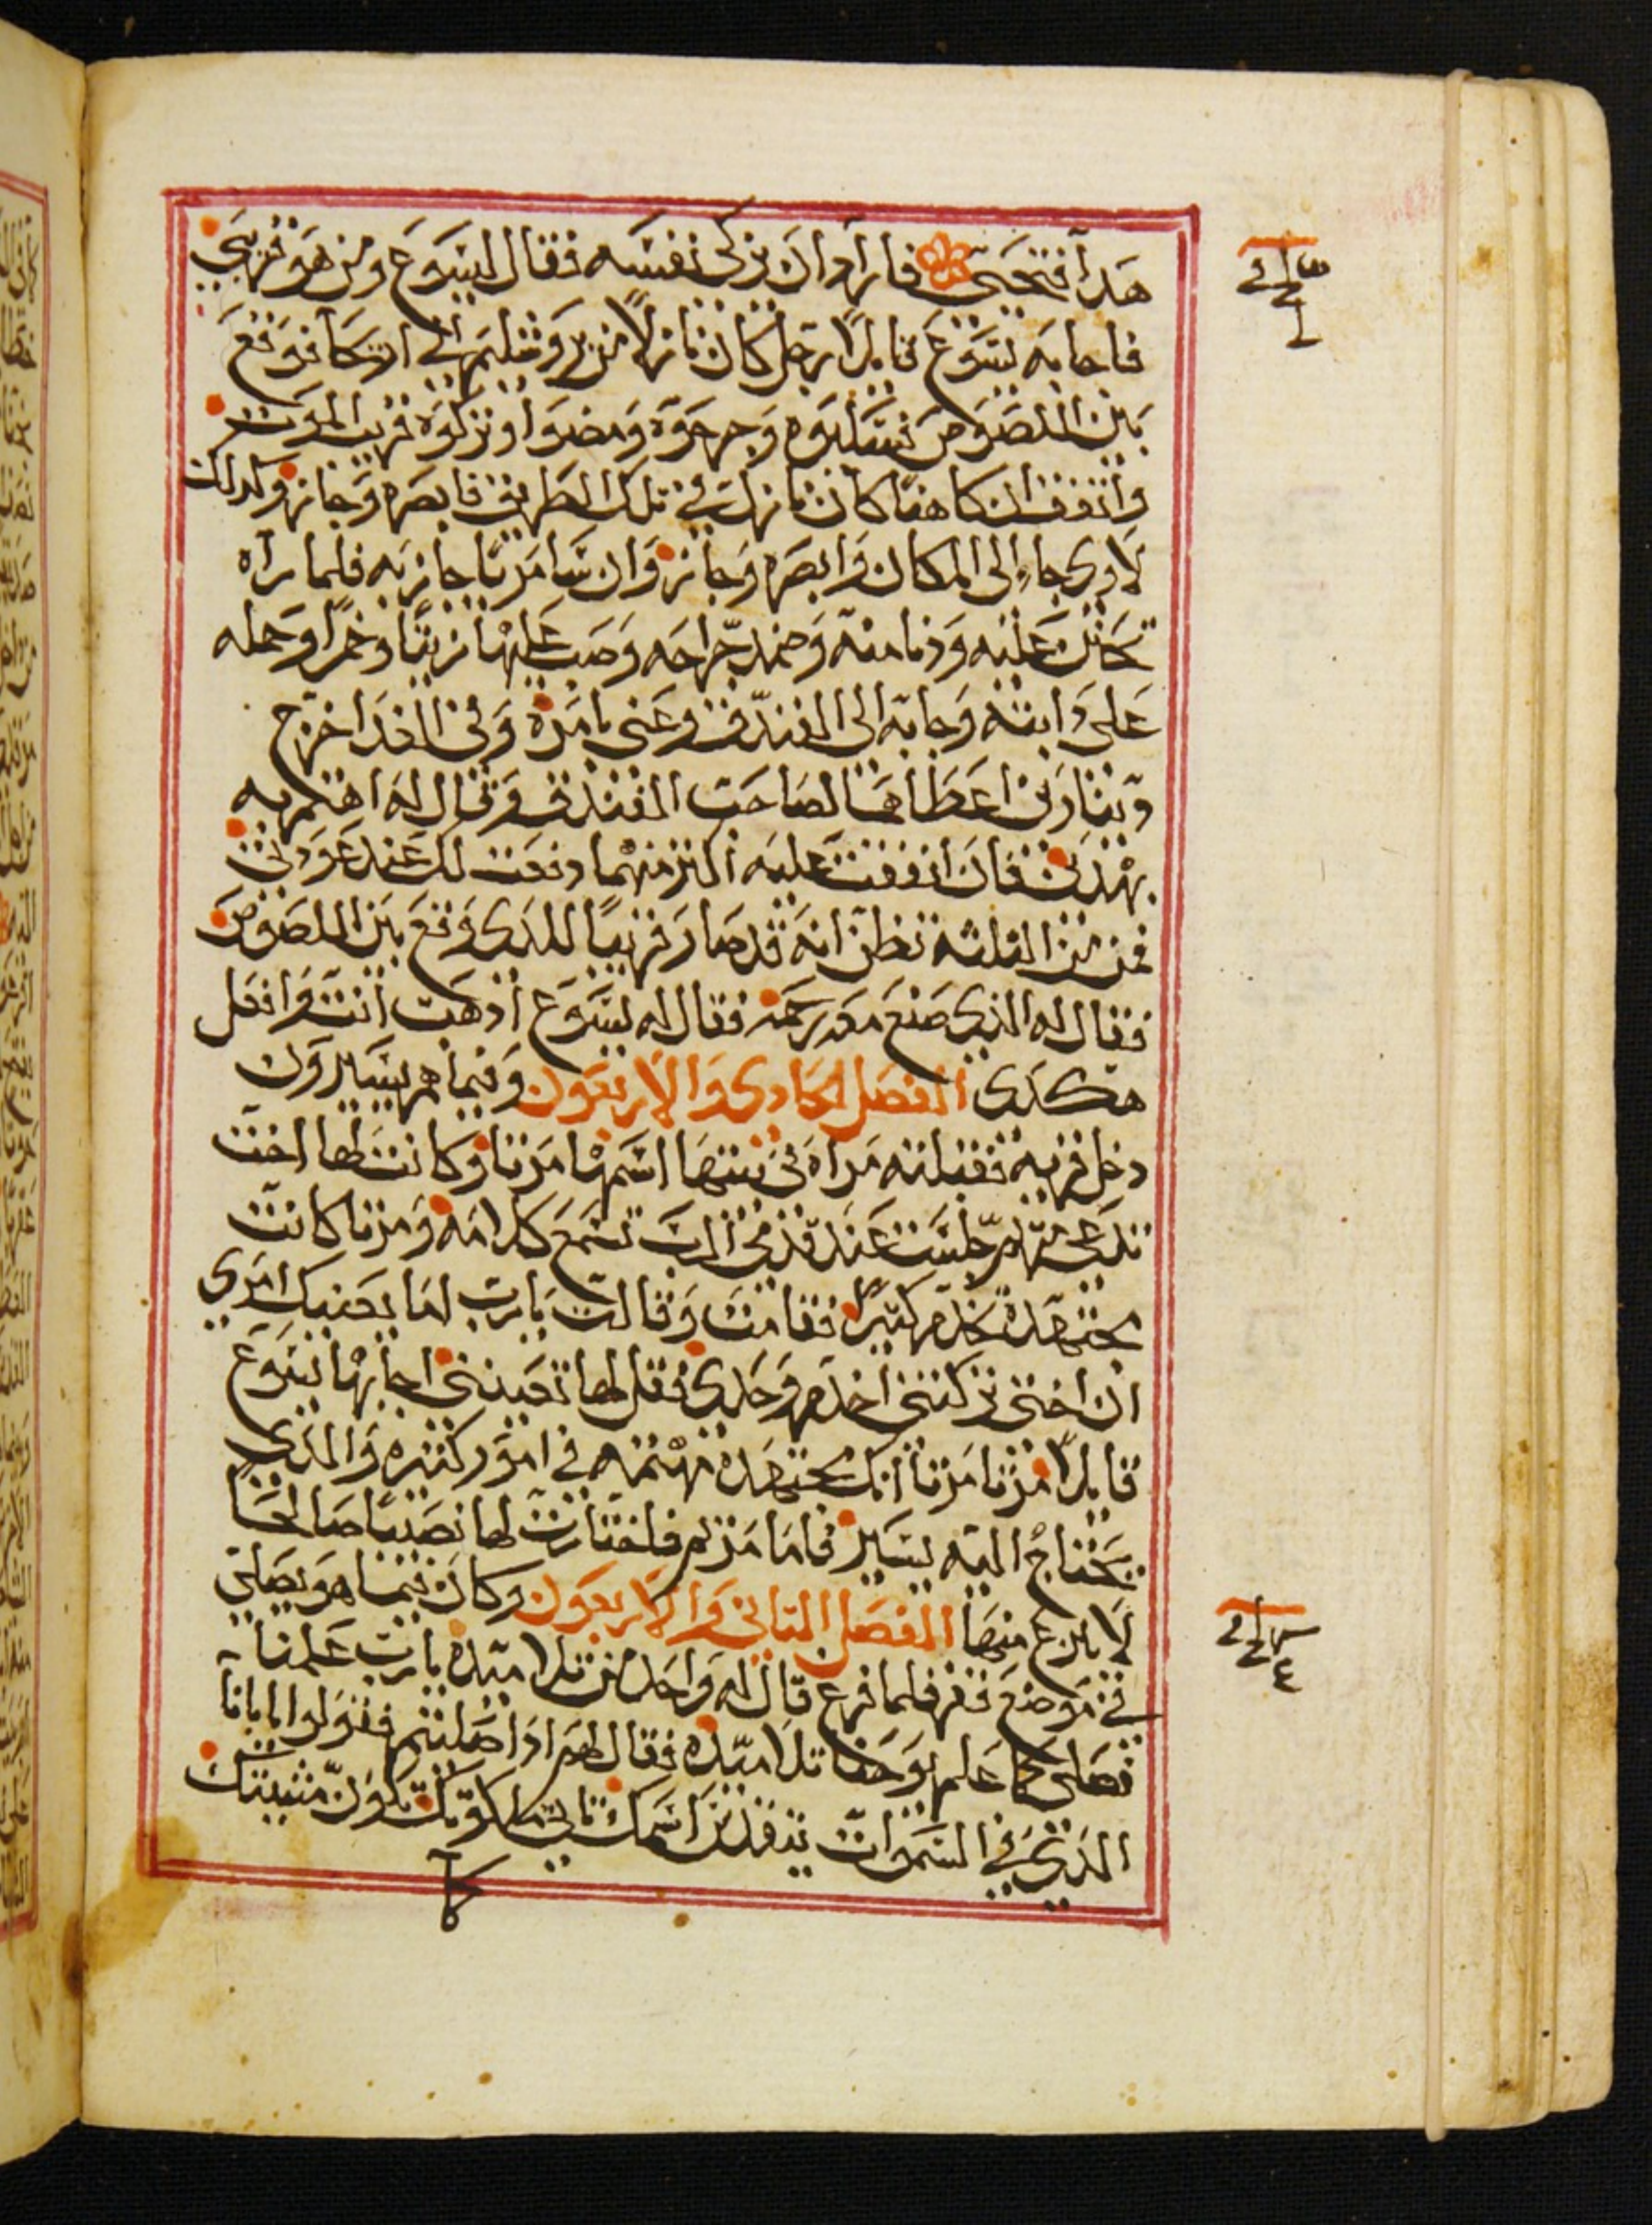 هدا فتحيى فاراد ان يزكى نفسه فقال ليسوع ومن هو قريبي
فاجابه يسوع قايلاً رجل كان نازلا من يروشليم الى اريحا فوقع
بين اللصوص فسلبوه وجرحوه ومضوا وتركوه قريب الموت
واتفق ان كاهنا كان نازل في تلك الطريق فابصره وجاز وكدلك
لاوى جاء الى المكان وابصره وجاز وان سامريا جاز به فلما راه
تحنن عليه ودنا منه وضمد جراحه وصب عليها زيتا وخمرا وحمله
على دابته وجابه الى الفندق وعنى بامره وفى الغد اخرج
دينارين اعطاهما لصاحب الفندق وقال له اهتم به
بهدين فان انفقت عليه اكتر منهما دفعت لك عند عودتى
فمن من التلته تظن انه قد صار قريبا للدى وقع بين اللصوص
فقال له الذى صنع معه رحمه فقال له يسوع ادهب انت وافعل
هكدى الفصل الحادى والاربعون وفيما هم يسيرون
دخل قريه فقبلته مراه فى بيتها اسمها مرتا وكانت لها اخت
تدعى مريم جلست عند قدمى الرب تسمع كلامه ومرتا كانت
مجتهدة تخدم كتيرا فقامت وقالت يارب اما يعنيك امرى
ان اختى تركتنى اخدم وحدى فقل لها تعيننى اجابها يسوع
قايلا مرتا مرتا انك مجتهده مهتمه في امور كتيره والدى
يحتاج اليه يسير فاما مريم فاختارت لها نصيبا صالحا
لا ينزع منها الفصل التانى والاربعون وكان فيما هو يصلى
في موضع قفر فلما فرغ قال له واحد من تلاميده يارب علمنا
نصلى كما علم يوحنا تلاميده فقال لهم ادا صليتم فقولوا يا ابانا
الدى في السموات يتقدس اسمك تاتى ملكوتك تكون مشيتك
كما